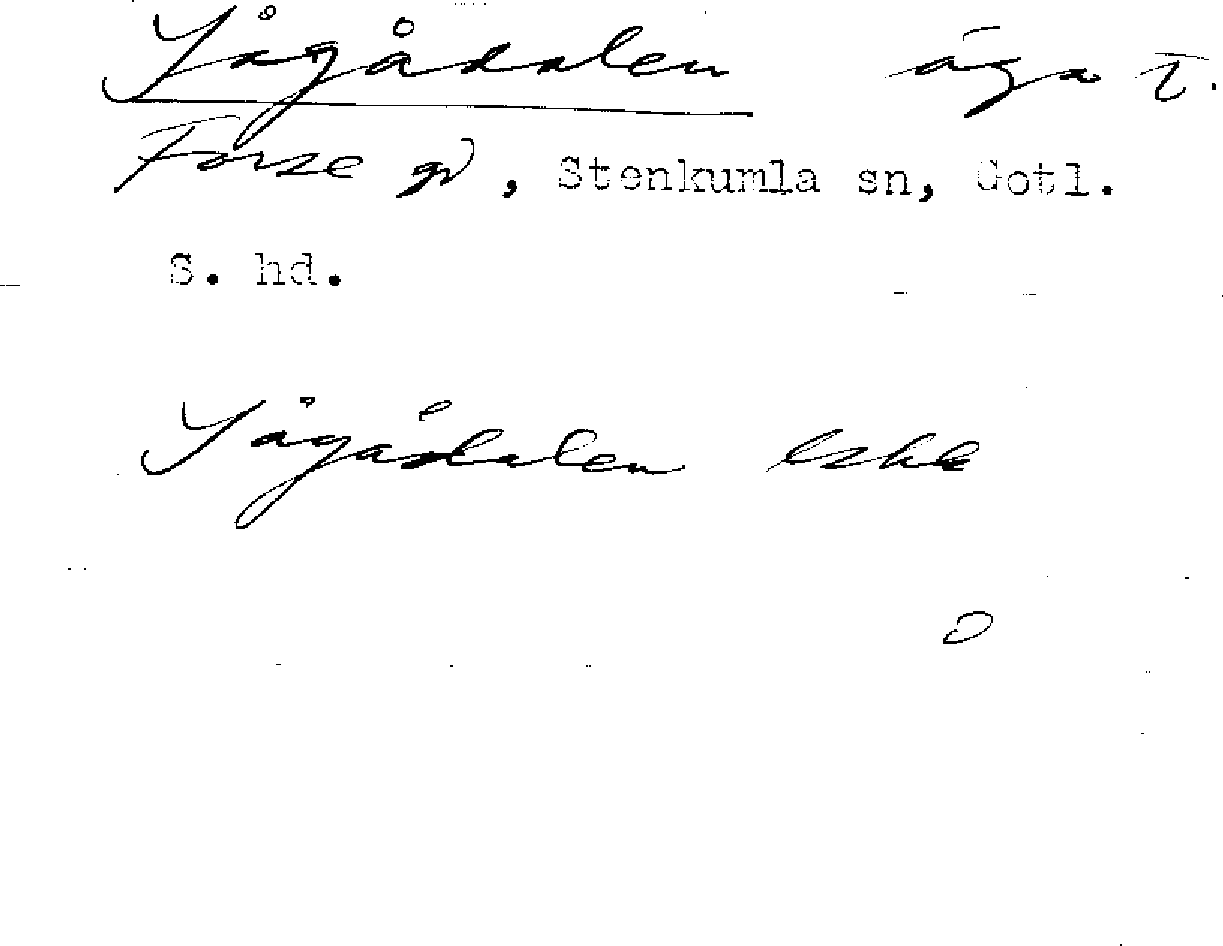 Jågådalen äga t.
Forse gd, Stenkumla sn, Gotl.
S. hd.
Jågådalen